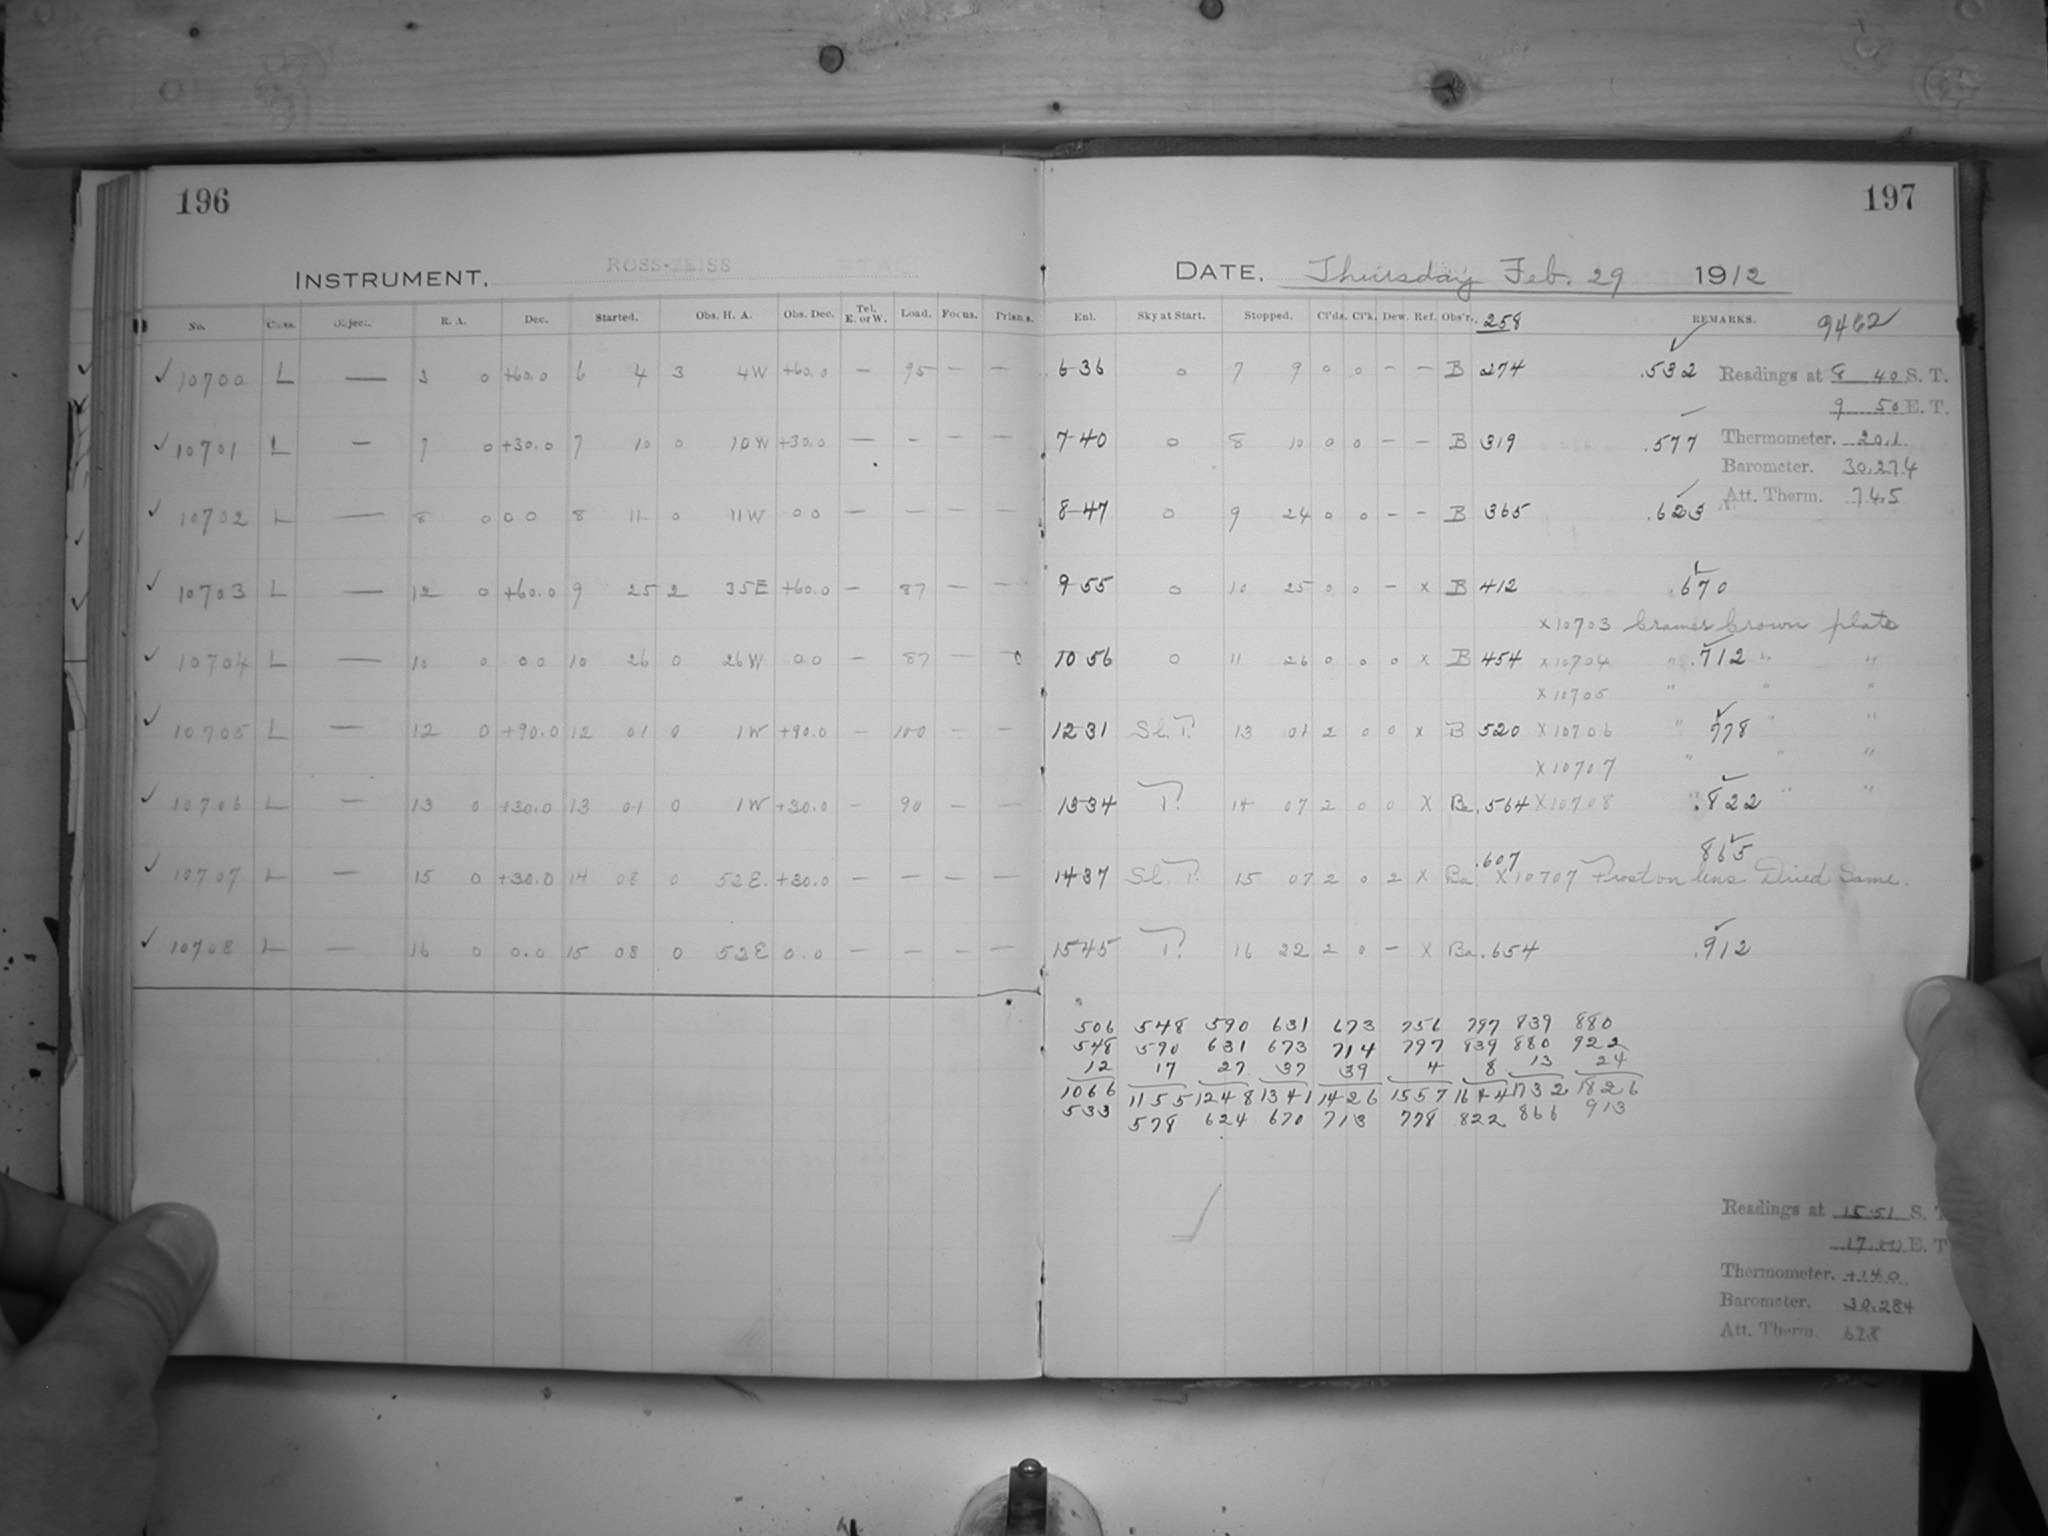 196
INSTRUMENT. ROSS-ZEISS
No. Class. Object. R. A. Dec. Started. Obs. H. A. Obs. Dec. Tel. E. or W. Load. Focus. Prisms.
✓ 10700 L — 3 0 +60.0 6 4 3 4W +60.0 — 95 — —
✓ 10701 L — 7 0 +30.0 7 10 0 10W +30.0 — - — —
✓ 10702 L — 8 0 00 8 11 0 11W 00 — — — —
✓ 10703 L — 12 0 +60.0 9 25 2 35E +60.0 — 87 — —
✓ 10704 L — 10 0 00 10 26 0 26W 00 — 87 —
✓ 10705 L — 12 0 +90.0 12 01 0 1W +90.0 — 100 — —
✓ 10706 L — 13 0 +30.0 13 01 0 1W +30.0 - 90 — —
✓ 10707 L — 15 0 +30.0 14 08 0 52E. +30.0 — — — —
✓ 10708 L — 16 0 0.0 15 08 0 52E 0.0 — — — —
197
DATE. Thursday Feb. 29 1912
Enl. Sky at Start. Stopped. Cl'ds. Cl'k. Dew. Ref. Obs'r. 258 REMARKS. 9462
6 36 0 7 9 0 0 — — B 274 .532 Readings at 8 40 S. T.
9 50 E. T.
7 40 0 8 10 0 0 — — B 319 .577 Thermometer. 20.1
Barometer. 30.274
Att. Therm. 74.5
8 47 0 9 24 0 0 — — B 365 .623
9 55 0 10 25 0 0 — x B 412 .670
x10703 Cramer Crown plate
10 56 0 11 26 0 0 0 x B 454 x10704 " .712 " "
x10705 " " "
12 31 Sl. T. 13 01 2 0 0 x B 520 x10706 " 778 " "
x10707 " " "
13 34 T. 14 07 2 0 0 X Ba .564 X10708 " .822 " "
.607 865
14 37 Sl. T. 15 07 2 0 2 X Ba X10707 Frost on lens Dried Same.
15 45 T. 16 22 2 0 — X Ba .654 .912
506 548 590 631 673 756 797 839 880
548 590 631 673 714 797 839 880 922
12 17 27 37 39 4 8 13 24
1066 1155 1248 1341 1426 1557 1644 1732 1826
533 578 624 670 713 778 822 866 913
Readings at 15 51 S. T
E. T
Thermometer. +14.0
Barometer. 30.284
Att. Therm. 67.8